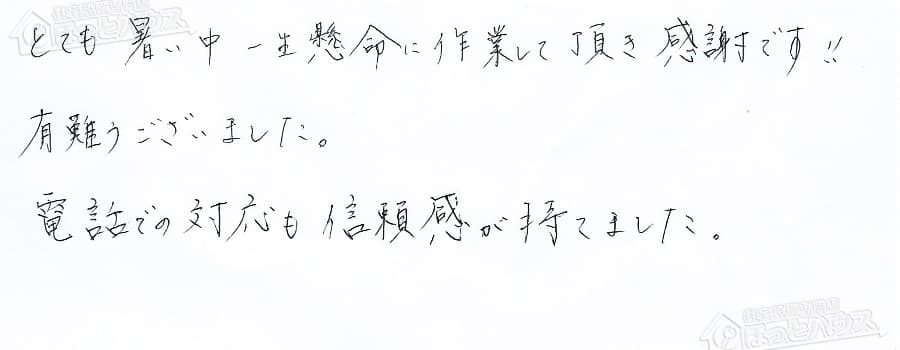 とても暑い中一生懸命に作業して頂き感謝です!!
有難うございました。
電話での対応も信頼感が持てました。
ほっとハウス